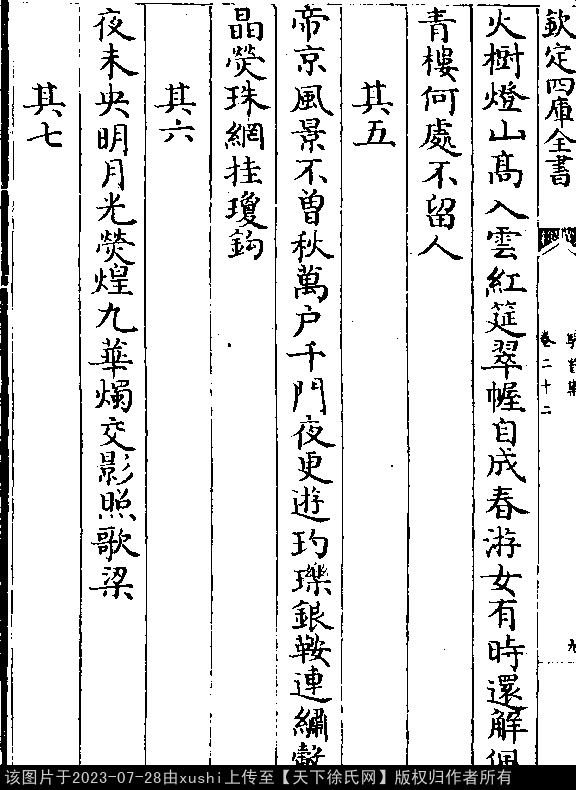 欽定四庫全書
卷二十二
火樹燈山髙入雲紅筵翠幄自成春游女有時還解佩
青樓何處不留人
其五
帝京風景不曽秋萬户千門夜更遊玓瓅銀鞍連繡轂
晶熒珠網挂瓊鈎
其六
夜未央明月光熒煌九華燭交影照歌梁
其七
该图片于2023-07-28由xushi上传至【天下徐氏网】版权归作者所有